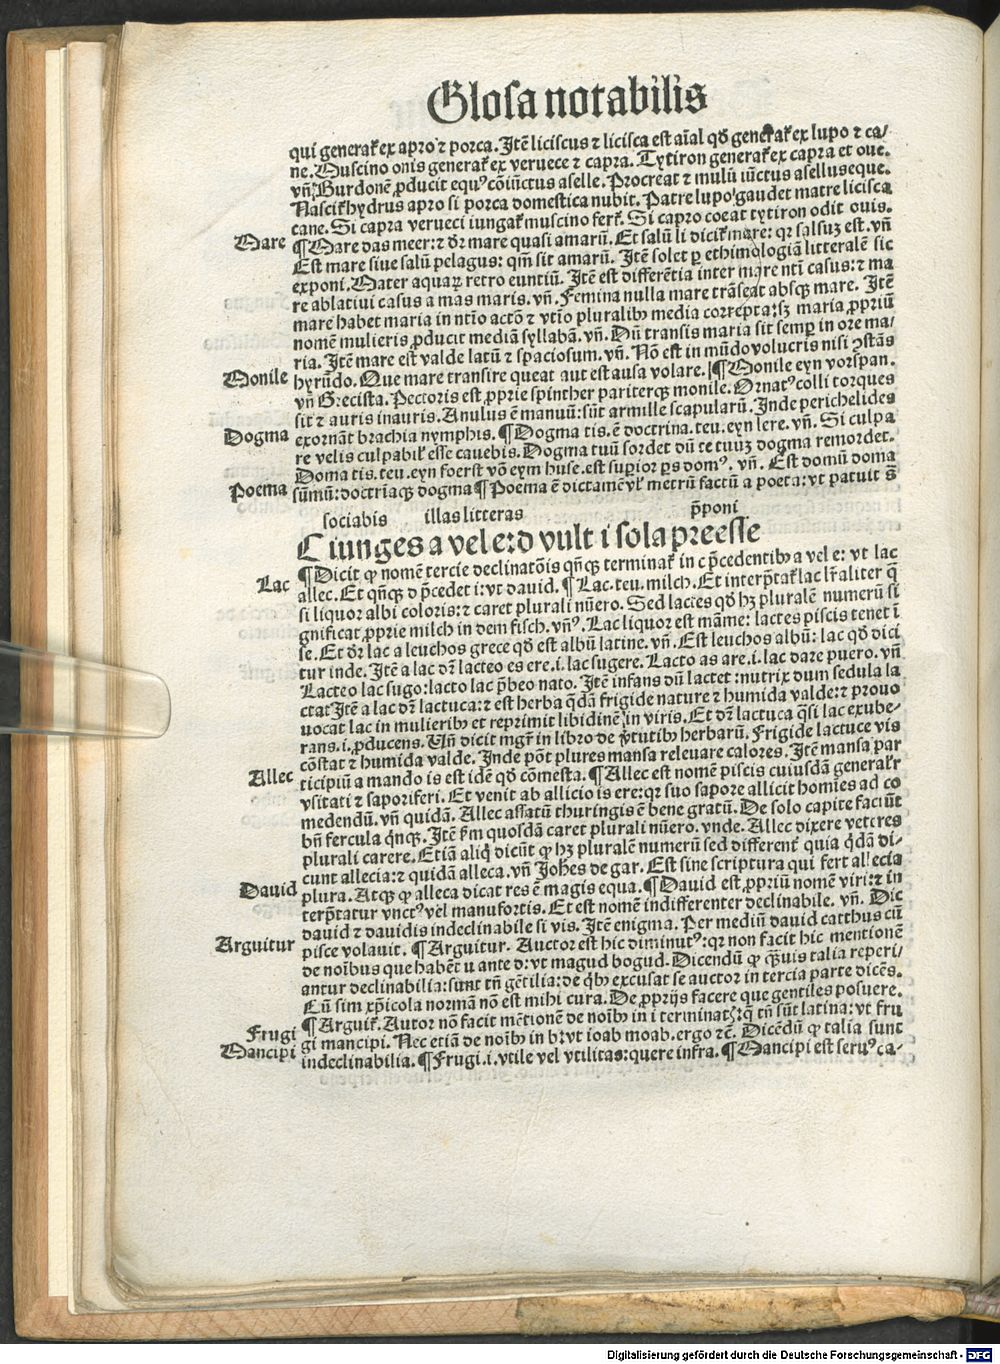 Glosa notabilis
qui generat᷑ ex apro ⁊ porca. Itē liciscus ⁊ licisca est aīal qđ generat᷑ ex lupo ⁊ ca/
ne. Muscino onis generat᷑ ex veruece ⁊ capra. Tytiron generat᷑ ex capra et oue.
vñ. Burdonē ꝓducit equꝰ cōiūctus aselle. Procreat ⁊ mulū iūctus asellus eque.
Nascit᷑ hydrus apro si porca domestica nubit. Patre lupo gaudet matre licisca
cane. Si capra verueci iungat᷑ muscino fert᷑. Si capro coeat tytiron odit ouis.
Mare ¶Mare das meer: ⁊ dr̄ mare quasi amarū. Et salū li dicit᷑ mare: qꝛ salsuꝫ est. vñ
Est mare siue salū pelagus: qm̄ sit amarū. Itē solet ꝑ ethimologiā litteralē sic
exponi. Mater aquaꝝ retro euntiū. Itē est differētia inter mare ntī casus: ⁊ ma
re ablatiui casus a mas maris. vñ. Femina nulla mare trāseat absqꝫ mare. Itē
mare habet maria in ntīo actō ⁊ vtīo pluralibꝫ media correpta: sꝫ maria ꝓpriū
nomē mulieris ꝓducit mediā syllabā. vñ. Dū transis maria sit semꝑ in ore ma/
ria. Itē mare est valde latū ⁊ spaciosum. vñ. Nō est in mūdo volucris nisi ꝯstās
Monile hyrūdo. Que mare transire queat aut est ausa volare. ¶Monile eyn vorspan.
vñ Grecista. Pectoris est ꝓprie spinther pariterqꝫ monile. Ornatꝰ colli torques
sit ⁊ auris inauris. Anulus ē manuū: sūt armille scapularū. Inde perichelides
Dogma exornāt brachia nymphis. ¶Dogma tis. ē doctrina. teu. eyn lere. vñ. Si culpa
re velis culpabil᷑ esse cauebis. Dogma tuū sordet dū te tuuꝫ dogma remordet.
Doma tis. teu. eyn foerst vō eym huse. est suꝑior ꝑs domꝰ. vñ. Est domū doma
Poema sūmū: doctrīaqꝫ dogma ¶Poema ē dictamē vl᷑ metrū factū a poeta: vt patuit s̄
sociabis illas litteras p̄poni
C iunges a vel e: d vult i sola preesse
¶Dicit ꝙ nomē tercie declinatōis qn̄qꝫ terminat᷑ in c p̄cedentibꝫ a vel e: vt lac
Lac allec. Et qn̄qꝫ d p̄cedet i: vt dauid. ¶Lac. teu. milch. Et interp̄tat᷑ lac lr̄aliter q̄
si liquor albi coloris: ⁊ caret plurali nūero. Sed lactes qđ hꝫ pluralē numerū si
gnificat ꝓprie milch in dem fisch. vñꝰ. Lac liquor est māme: lactes piscis tenet ī
se. Et dr̄ lac a leuchos grece qđ est albū latine. vñ. Est leuchos albū: lac qđ dici
tur inde. Itē a lac dr̄ lacteo es ere. i. lac sugere. Lacto as are. i. lac dare puero. vñ
Lacteo lac sugo: lacto lac p̄beo nato. Itē infans dū lactet: nutrix dum sedula la
ctat Itē a lac dr̄ lactuca: ⁊ est herba qdā frigide nature ⁊ humida valde: ⁊ prouo
uocat lac in mulieribꝫ et reprimit libidinē in viris. Et dr̄ lactuca q̄si lac exube-
rans. i. ꝓducens. Vñ dicit mgr̄ in libro de v̓tutibꝫ herbarū. Frigide lactuce vis
cōstat ⁊ humida valde. Inde pōt plures mansa releuare calores. Itē mansa par
Allec ticipiū a mando is est idē qđ cōmesta. ¶Allec est nomē piscis cuiusdā generalr̓
vsitati ⁊ saporiferi. Et venit ab allicio is ere: qꝛ suo sapore allicit homīes ad co
medendū. vñ quidā. Allec assatū thuringis ē bene gratū. De solo capite faciūt
bn̄ fercula q̄nqꝫ. Itē fm̄ quosdā caret plurali nūero. vnde. Allec dixere veteres
plurali carere. Etiā aliq̄ dicūt ꝙ hꝫ pluralē numerū sed different᷑ quia qdā di-
cunt allecia: ⁊ quidā alleca. vñ Johēs de gar. Est sine scriptura qui fert allecia
Dauid plura. Atqꝫ ꝙ alleca dicat res ē magis equa. ¶Dauid est ꝓpriū nomē viri: ⁊ in
terp̄tatur vnctꝰ vel manu fortis. Et est nomē indifferenter declinabile. vñ. Dic
dauid ⁊ dauidis indeclinabile si vis. Itē enigma. Per mediū dauid catthus cū
Arguitur pisce volauit. ¶Arguitur. Auctor est hic diminutꝰ: qꝛ non facit hic mentionē
de noībus que habēt u ante d: vt magud bogud. Dicendū ꝙ q̄uis talia reperi/
antur declinabilia: sunt tn̄ gētilia: de qbꝫ excusat se auctor in tercia parte dicēs.
Cū sim xp̄icola normā nō est mihi cura. De ꝓprijs facere que gentiles posuere.
¶Arguit᷑. Autor nō facit mētionē de noībꝫ in i terminatꝭ: q̄ tn̄ sūt latina: vt fru
Frugi gi mancipi. Nec etiā de noībꝫ in b: vt ioab moab. ergo ⁊c̄. Dicēdū ꝙ talia sunt
Mancipi indeclinabilia. ¶Frugi. i. vtile vel vtilitas: quere infra. ¶Mancipi est seruꝰ ca-
Digitalisierung gefördert durch die Deutsche Forschungsgemeinschaft - DFG